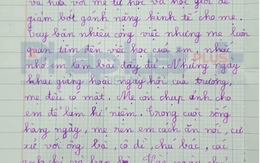 và nữa với mẹ từ học và nơi giới để
giảm bớt gánh nặng kinh tế cho mẹ.
Tuy bận nhiều công việc nhưng mẹ luôn
quan tâm đến việc học của em, nhắc
nhở em làm bài đầy đủ. Những ngày
khai giảng hoặc ngày hội của trường,
mẹ đều có mặt. Mẹ còn chụp ảnh cho
em để làm kỉ niệm. Trong cuộc sống
hàng ngày, mẹ rèn em cách ăn nói, cư
xử với ông bà, cô dì, chú bác, cái